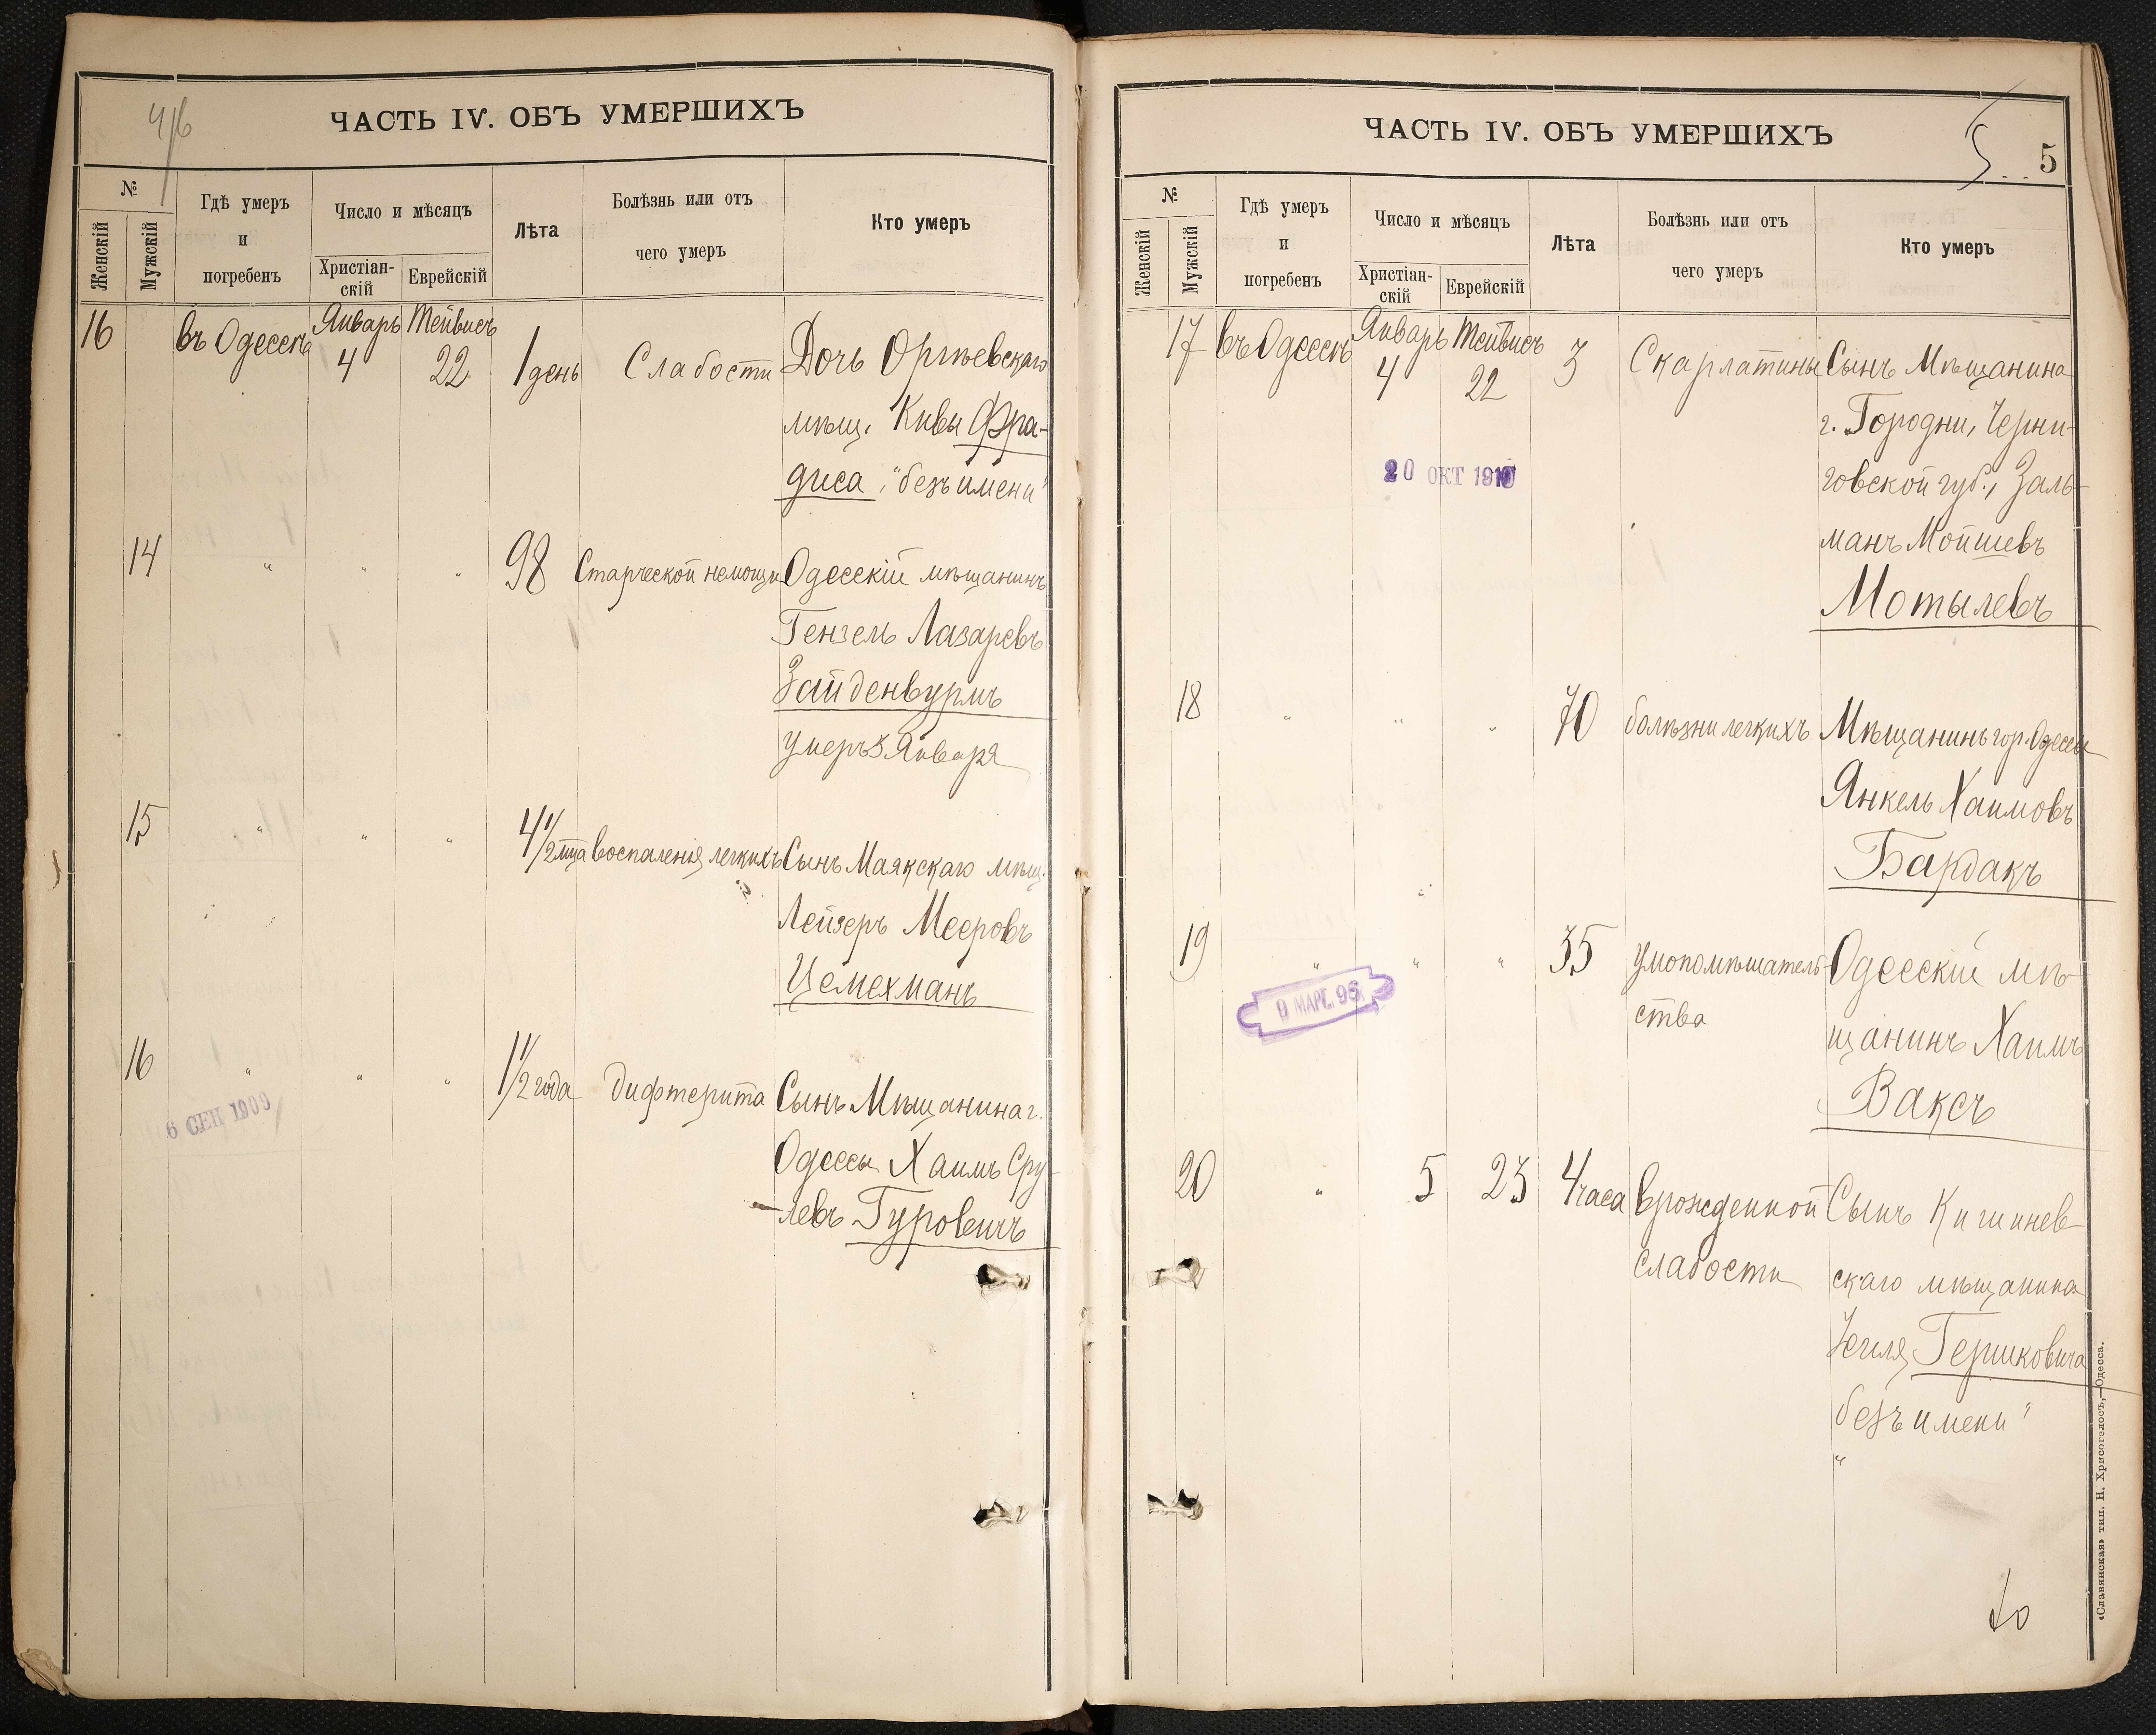 4/6
ЧАСТЬ IV. ОБЪ УМЕРШИХЪ
№
Женскій
Мужскій
Гдѣ умеръ
и
погребенъ
Число и мѣсяцъ
Христіан-
скій
Еврейскій
Лѣта
Болѣзнь или отъ
чего умеръ
Кто умеръ
16 въ Одессѣ Январь 4 Тейвисъ 22 1 день Слабости Дочь Оргѣевскаго
мѣщ. Кивы Фра-
диса, "безъ имени"
14 " " " 98 Старческой немощи Одесскій мѣщанинъ
Гензель Лазаревъ
Зайденвурмъ
умеръ 3 Января
15 " " " 4 1/2 мца воспаленія легкихъ Сынъ Маякскаго мѣщ.
Лейзеръ Мееровъ
Цемехманъ
16 " " " 1 1/2 года дифтерита Сынъ Мѣщанина г.
6 СЕН 1909
Одессы Хаимъ Сру-
левъ Гуровичъ
ЧАСТЬ IV. ОБЪ УМЕРШИХЪ
5
5
№
Женскій
Мужскій
Гдѣ умеръ
и
погребенъ
Число и мѣсяцъ
Христіан-
скій
Еврейскій
Лѣта
Болѣзнь или отъ
чего умеръ
Кто умеръ
17 въ Одессѣ Январь 4 Тейвисъ 22 3 Скарлатины Сынъ Мѣщанина
г. Городни, Черни-
20 ОКТ 1910
говской губ., Заль-
манъ Мойшевъ
Мотылевъ
18 " " " 70 болѣзни легкихъ Мѣщанинъ гор. Одессы
Янкель Хаимовъ
Бардакъ
19 " " " 35 умопомѣшатель- Одесскій мѣ-
9 МАРТ. 98
ства щанинъ Хаимъ
Ваксъ
20 " 5 23 4 часа врожденной Сынъ Кишинев-
слабости скаго мѣщанина
Гершковича
"безъ имени"
«Славянская» тип. Н. Хрисогелосъ,—Одесса.